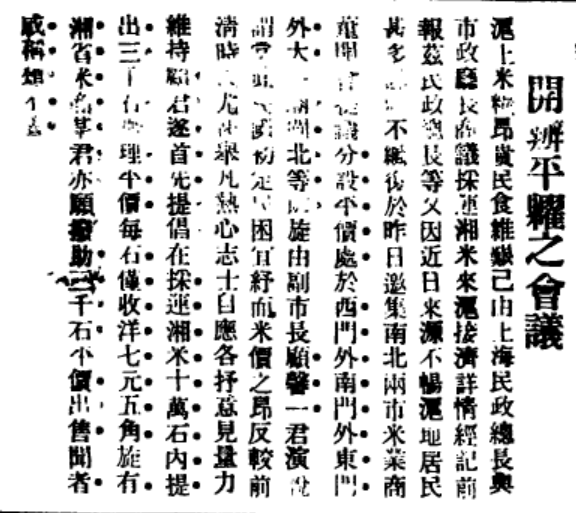 開辦平糶之會議
滬上米糧昂貴民食維艱已由上海民政總長與
市政廳長商議採運湘米來滬接濟詳情經記前
報茲民政總長等又因近日來源不暢滬地居民
甚多 不繼復於昨日邀集南北兩市米業商
董開會 議分設平價處於西門外南門外東門
外大 湖北等 旋由副市長顧馨一君演說
謂 初定民困宜紓而米價之昂反較前
清時 尤 凡熱心志士自應各抒意見量力
維持顧君遂首先提倡在採運湘米十萬石內提
出三千石 理平價每石僅收洋七元五角旋有
湘省米 某君亦願撥助三千石平價出售聞者
咸稱